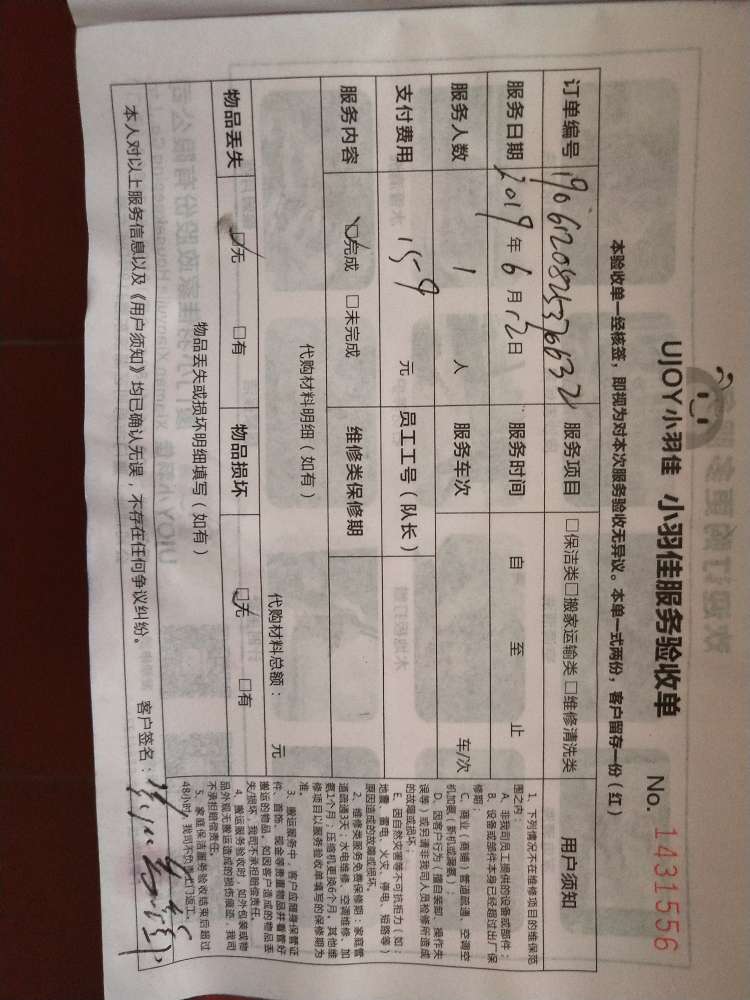 UJOY小羽佳 小羽佳服务验收单 No. 1431556
本验收单一经核签，即视为对本次服务验收无异议。本单一式两份，客户留存一份（红）
订单编号 服务项目 □保洁类□搬家运输类 □维修清洗类 用户须知
服务日期 2019 年 6 月 12 日 服务时间 自 至 止
服务人数 1 人 服务车次 车/次
支付费用 159 元 员工工号（队长）
服务内容 ☑完成 □未完成 维修类保修期
代购材料明细（如有）
代购材料总额： 元
物品丢失 ☑无 □有 物品损坏 ☑无 □有
物品丢失或损坏明细填写（如有）
本人对以上服务信息以及《用户须知》均已确认无误，不存在任何争议纠纷。 客户签名：
1、下列情况不在维修项目的维保范
围之内：
A、非我司员工提供的设备或部件；
B、设备或部件本身已经超过出厂保
修期；
C、商业（商铺）管道疏通、空调空
机加氨（新机或漏氨）；
D、因客户行为（擅自装卸、操作失
误等）或另请非我司人员检修所造成
的故障或损坏；
E、因自然灾害等不可抗拒力（如：
地震、雷电、火灾、停电、短路等）
原因造成的故障或损坏。
2、维修类服务免费保修期：家庭管
道疏通3天；水电维修、空调维修、加
氨1个月；压缩机更换6个月，其他维
修项目以服务验收单填写的保修期为
准。
3、搬运服务中，客户应随身保管证
件、首饰、现金等贵重物品并看管好
搬运的物品，如因客户造成的物品丢
失/损坏，我司不承担赔偿责任。
4、搬运服务验收时，如外包装或物
品外观无搬运造成的损伤痕迹，我司
不承担赔偿责任。
5、家庭保洁服务验收结束后超过
48小时，我司不负责上门返工。